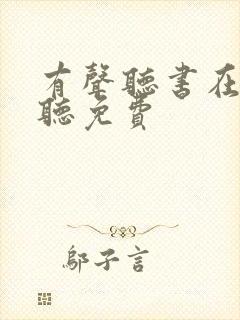 有聲聽書在
聽免費
鄔子言